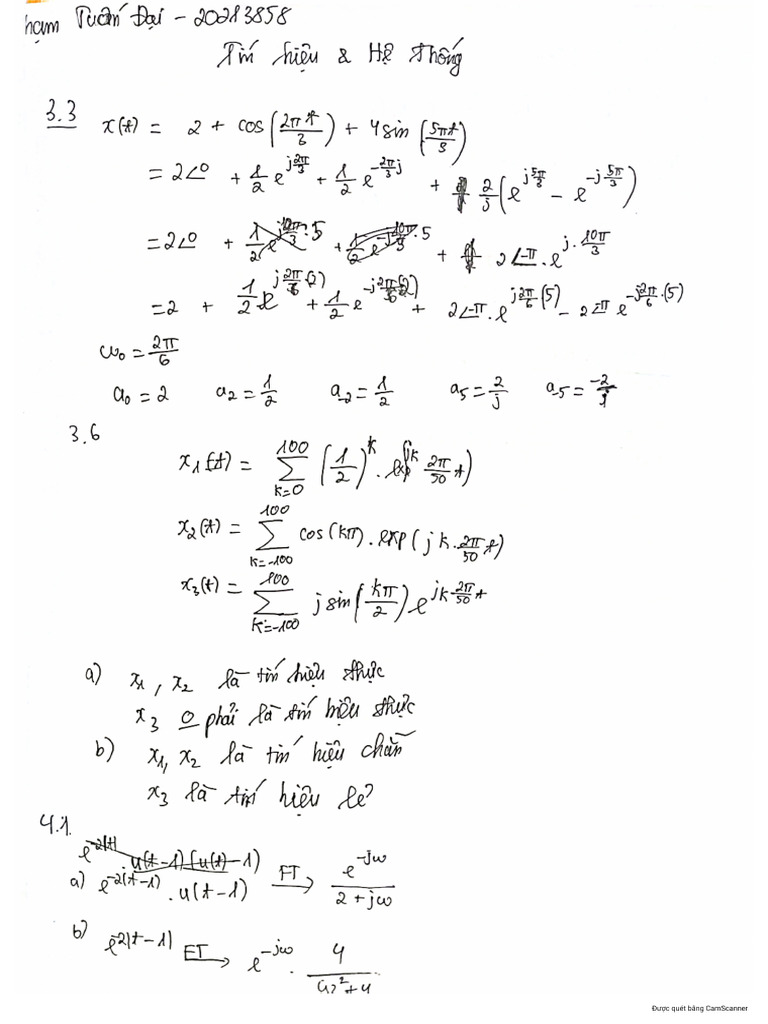 hạm Tuấn Đại - 20213858
Tín hiệu & Hệ thống
3.3 x(t) = 2 + cos(2πt/3) + 4sin(5πt/3)
= 2∠0 + 1/2 e^{j2π/3} + 1/2 e^{-2π/3 j} + 2/j (e^{j5π/3} - e^{-j5π/3})
= 2∠0 + 1/2 e^{j10π/3·5} + 1/2 e^{-j10π/3·5} + 2∠-π · e^{j·10π/3}
= 2 + 1/2 e^{j2π/6(2)} + 1/2 e^{-j2π/6(2)} + 2∠-π · e^{j2π/6(5)} - 2∠-π e^{-j2π/6·(5)}
ω₀ = 2π/6
a₀ = 2 a₂ = 1/2 a₋₂ = 1/2 a₅ = 2/j a₋₅ = -2/j
3.6
x₁(t) = ∑_{k=0}^{100} (1/2)^k · exp(jk 2π/50 t)
x₂(t) = ∑_{k=-100}^{100} cos(kπ) · exp(jk · 2π/50 t)
x₃(t) = ∑_{k=-100}^{100} j sin(kπ/2) e^{jk·2π/50 t}
a) x₁, x₂ là tín hiệu thực
x₃ o phải là tín hiệu thực
b) x₁, x₂ là tín hiệu chẵn
x₃ là tín hiệu lẻ
4.1.
e^{-2|t|} u(t-1) [u(t)-1)
a) e^{-2(t-1)} · u(t-1) FT→ e^{-jω}/(2+jω)
b) e^{-2|t-1|} FT→ e^{-jω} · 4/(ω²+4)
Được quét bằng CamScanner